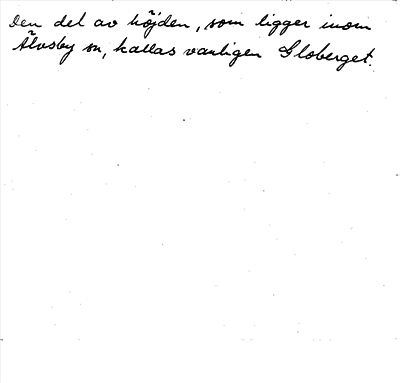 Den del av höjden, som ligger inom
Älvsby sn, kallas vanligen Globerget.